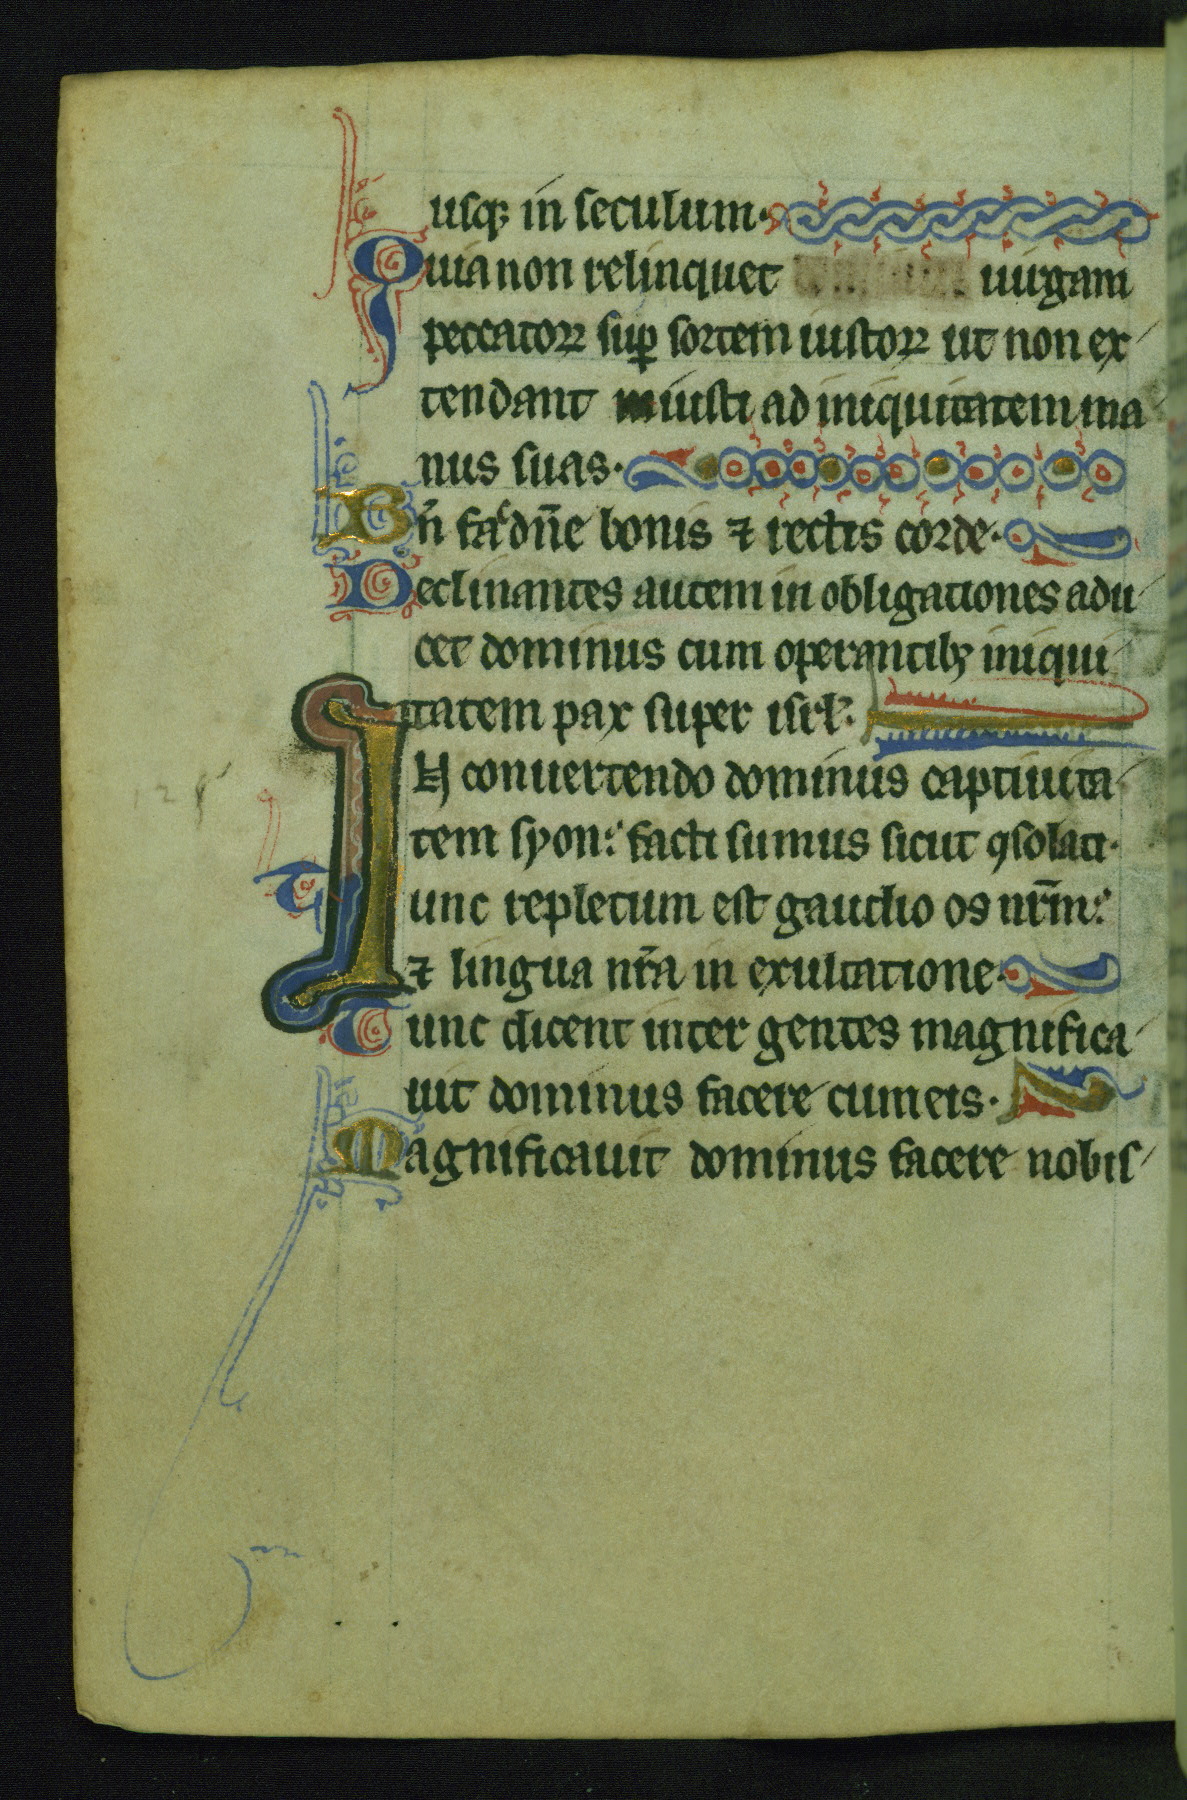 usqꝫ in seculum·
Quia non relinquet uirgam
peccatoꝝ suꝑ sortem iustoꝝ ut non ex
tendant iusti ad iniquitatem ma
nus suas·
Bn̄ fac dn̄e bonis ⁊ rectis corde·
Declinantes autem in obligationes addu
cet dominus cum operantibꝫ iniqui
tatem pax super isrl̄·
IN conuertendo dominus captiuita
tem syon: facti sumus sicut ꝯsolati·
Tunc repletum est gaudio os nr̄m:
⁊ lingua nr̄a in exultatione·
Tunc dicent inter gentes magnifica
uit dominus facere cum eis·
Magnificauit dominus facere nobis